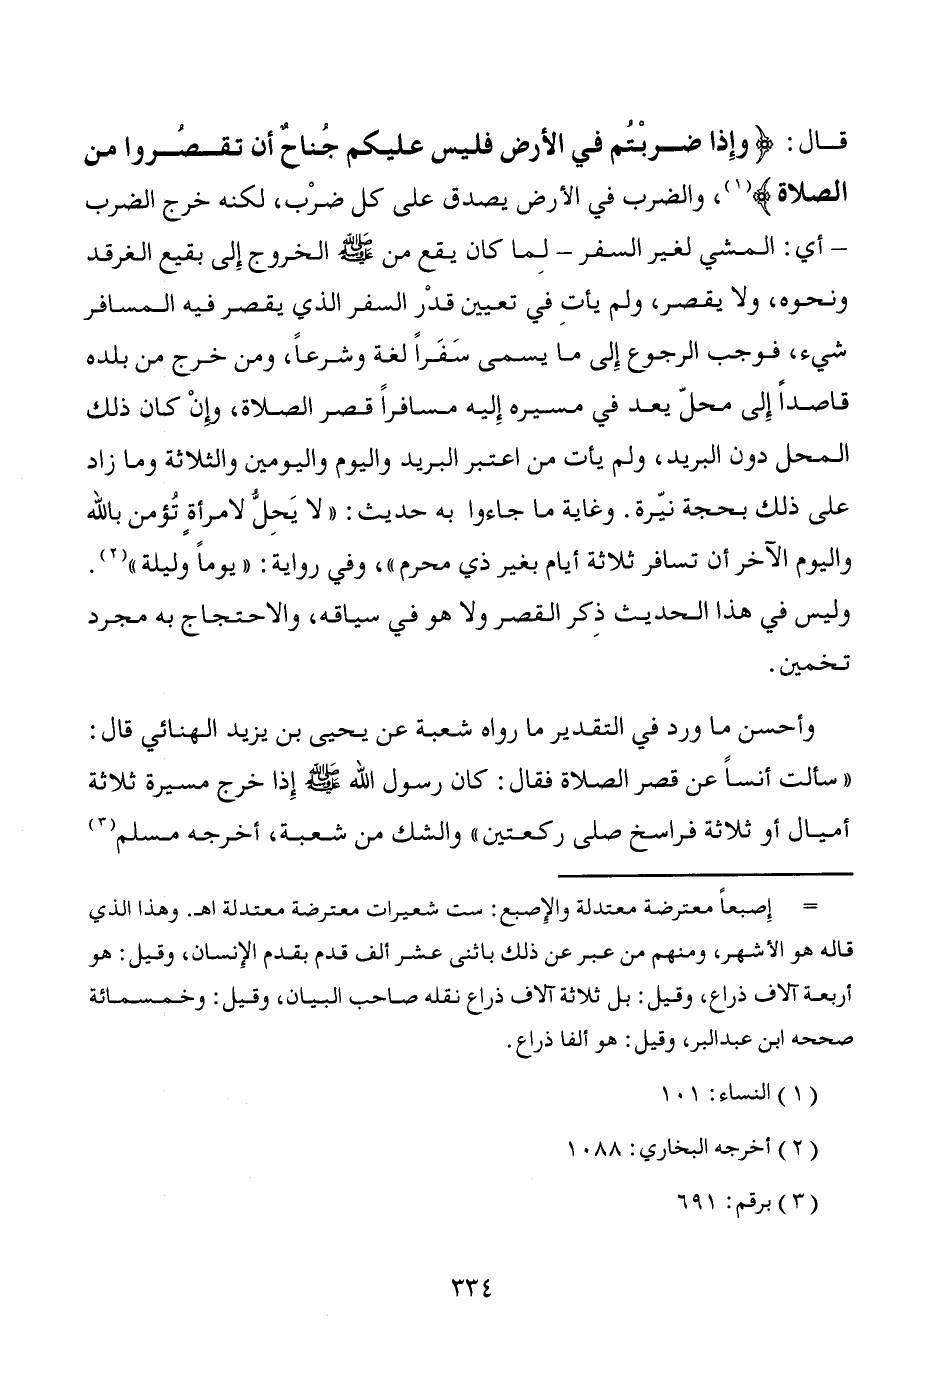 قال: ﴿ وإذا ضربْتُم في الأرض فليس عليكم جُناحٌ أن تقصُروا من
الصلاة ﴾(١)، والضرب في الأرض يصدق على كل ضرْب، لكنه خرج الضرب
– أي: المشي لغير السفر – لِما كان يقع من ﷺ الخروج إلى بقيع الغرقد
ونحوه، ولا يقصر، ولم يأتِ في تعيين قدْر السفر الذي يقصر فيه المسافر
شيء، فوجب الرجوع إلى ما يسمى سَفَراً لغة وشرعاً، ومن خرج من بلده
قاصداً إلى محلّ يعد في مسيره إليه مسافراً قصر الصلاة، وإنْ كان ذلك
المحل دون البريد، ولم يأت من اعتبر البريد واليوم واليومين والثلاثة وما زاد
على ذلك بحجة نيّرة. وغاية ما جاءوا به حديث: « لا يَحِلُّ لامرأةٍ تُؤمن بالله
واليوم الآخر أن تسافر ثلاثة أيام بغير ذي محرم»، وفي رواية: « يوماً وليلة »(٢).
وليس في هذا الحديث ذِكر القصر ولا هو في سياقه، والاحتجاج به مجرد
تخمين.
وأحسن ما ورد في التقدير ما رواه شعبة عن يحيى بن يزيد الهنائي قال:
« سألت أنساً عن قصر الصلاة فقال: كان رسول الله ﷺ إذا خرج مسيرة ثلاثة
أميال أو ثلاثة فراسخ صلى ركعتين» والشك من شعبة، أخرجه مسلم(٣)
= إصبعاً معترضة معتدلة والإصبع: ست شعيرات معترضة معتدلة اهـ. وهذا الذي
قاله هو الأشهر، ومنهم من عبر عن ذلك باثنى عشر ألف قدم بقدم الإنسان، وقيل: هو
أربعة آلاف ذراع، وقيل: بل ثلاثة آلاف ذراع نقله صاحب البيان، وقيل: وخمسمائة
صححه ابن عبدالبر، وقيل: هو ألفا ذراع.
(١) النساء: ١٠١
(٢) أخرجه البخاري: ١٠٨٨
(٣) برقم: ٦٩١
٣٣٤